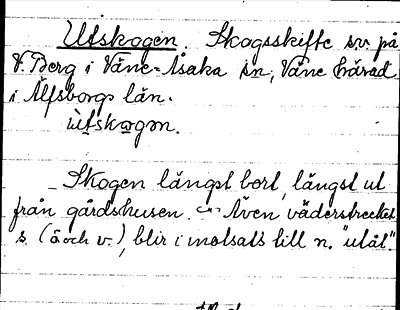 Utskogen. Skogsskifte sv på
V. Berg i Väne-Åsaka sn, Väne härad
i Älfsborgs län.
ùtskωgən.
– Skogen längst bort, längst ut
från gårdshusen. – Även väderstrecket
s. (ö och v.), blir i motsats till n. "utåt".